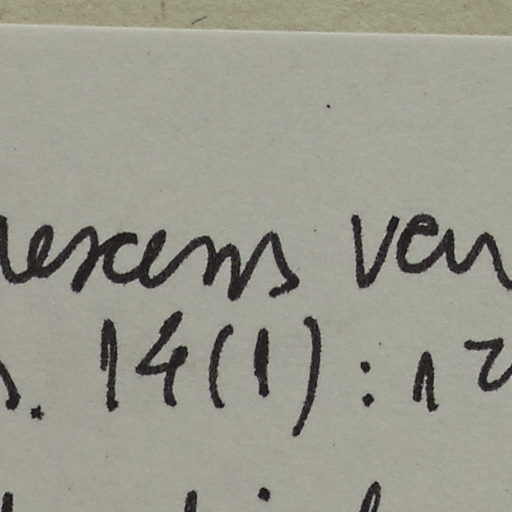 rescens ven
. 14(1): 12